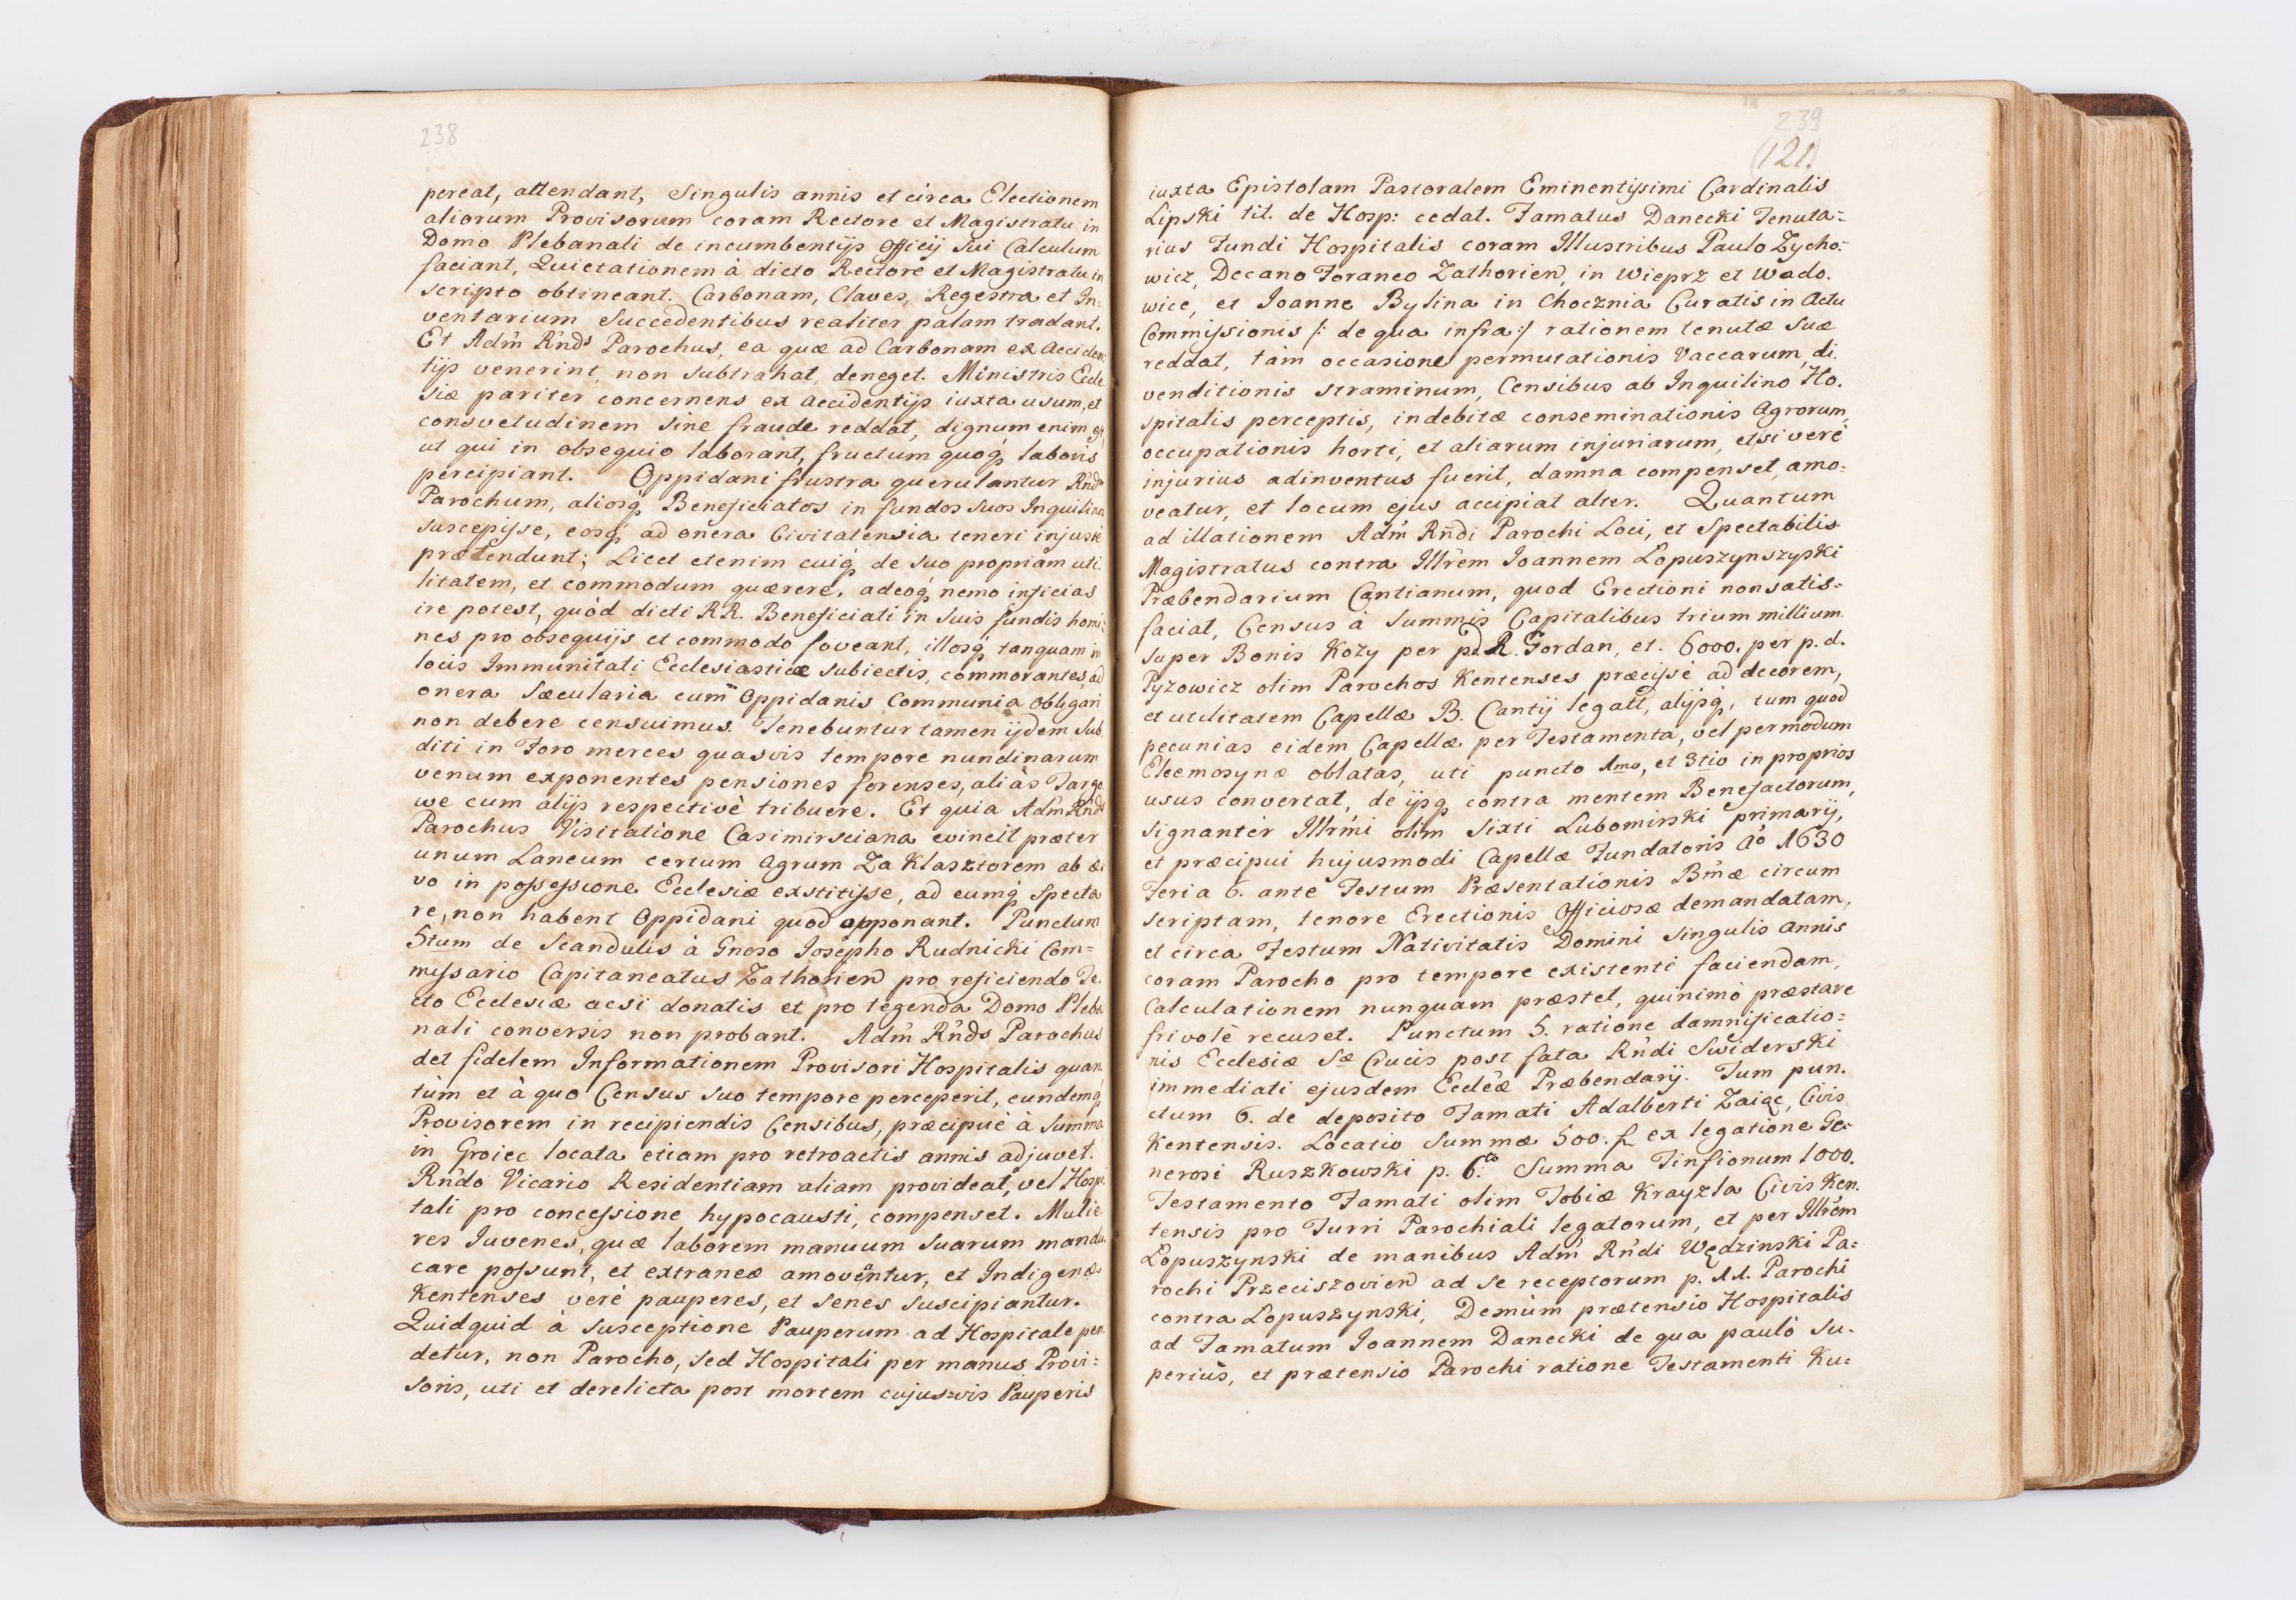 238
pereat, attendant, Singulis annis et circa Electionem
aliorum Provisorum coram Rectore et Magistratu in
Domo Plebanali de incumbentijs Officij Sui Calculum
faciant, Quietationem à dicto Rectore et Magistratu in
scripto obtineant. Carbonam, Claves, Regestra et In:
ventarium Succedentibus realiter palam tradant.
Et Adm̃ Rnds Parochus, ea quæ ad Carbonam ex Acciden
tijs venerint, non subtrahat, deneget. Ministris Eccle
siæ pariter concernens ex accidentijs iuxta usum, et
consvetudinem sine fraude reddat, dignum enim est,
ut qui in obsequio laborant, fructum quoq́ laboris
percipiant. Oppidani frustra querulantur Rñdm
Parochum, aliosq́ Beneficiatos in fundos suos Inquilinos
suscepisse, eosq́ ad onera Civitatensia teneri injustè
prætendunt; Licet etenim cuiq́ de suo propriam uti
litatem, et commodum quærere, adeoq́ nemo inficias
ire potest, quòd dicti RR. Beneficiati in suis fundis homi:
nes pro obsequijs et commodo foveant, illosq́ tanquam in
locis Immunitati Ecclesiasticæ subiectis, commorantes, ad
onera Sæcularia cum Oppidanis Communia obligari
non debere censuimus. Tenebuntur tamen ijdem Sub
diti in Foro merces quasvis tempore nundinarum
venum exponentes pensiones forenses, aliàs Targo
we cum alijs respectivè tribuere. Et quia Adm̃ Rñds
Parochus Visitatione Casimirsciana evincit præter
unum Laneum certum Agrum Za Klasztorem ab æ
vo in possessione Ecclesiæ exstitisse, ad eumq́ specta
re, non habent Oppidani quod apponant. Punctum
5tum de Scandulis à Gnoso Josepho Rudnicki Com=
missario Capitaneatus Zathorien pro reficiendo Te
cto Ecclesiæ acsi donatis et pro tegenda Domo Pleba
nali conversis non probant. Adm̃ Rñds Parochus
det fidelem Informationem Provisori Hospitalis quan
tùm et à quo Census suo tempore perceperit, eundemq́
Provisorem in recipiendis Censibus, præcipuè à Summa
in Groiec locata etiam pro retroactis annis adjuvet.
Rñdo Vicario Residentiam aliam provideat, vel Hospi
tali pro concessione hypocausti, compenset. Mulie
res Juvenes, quæ laborem manuum suarum mandu
care possunt, et extraneæ amoventur, et Indigenæ
Kentenses verè pauperes, et senes suscipiantur.
Quidquid à susceptione Pauperum ad Hospitale pen
detur, non Parocho, sed Hospitali per manus Provi=
soris, uti et derelicta post mortem cujus=vis Pauperis
239
(121.)
iuxta Epistolam Pastoralem Eminentissimi Cardinalis
Lipski tit. de Hosp: cedat. Famatus Danecki Tenuta=
rius Fundi Hospitalis coram Illustribus Paulo Zycho=
wicz, Decano Foraneo Zathorien, in Wieprz et Wado.
wice, et Joanne Bylina in Chocznia Curatis in Actu
Commissionis /: de qua infra:/ rationem tenutæ suæ
reddat, tàm occasione permutationis Vaccarum, di.
venditionis straminum, Censibus ab Inquilino Ho.
spitalis perceptis, indebitæ conseminationis Agrorum,
occupationis horti, et aliarum injuriarum, etsi verè
injurius adinventus fuerit, damna compenset, amo=
veatur, et locum ejus accipiat alter. Quantum
ad illationem Adm̃ Rñdi Parochi Loci, et Spectabilis
Magistratus contra Illrem Joannem Lopuszynszyski
Præbendarium Cantianum, quod Erectioni non satis=
faciat, Census à Summis Capitalibus trium millium
super Bonis Kozy per pd. R. Gordan, et. 6000. per p. d.
Pyzowicz olim Parochos Kentenses præcisè ad decorem,
et utilitatem Capellæ B. Cantij legatt, alijsq́, tum quod
pecunias eidem Capellæ per Testamenta, vel per modum
Eleemosynæ oblatas, uti puncto 1mo, et 3tio in proprios
usus convertat, de ijsq́ contra mentem Benefactorum,
signantèr Illrmi olim Sixti Lubomirski primarij,
et præcipui hujusmodi Capellæ Fundatoris Aô 1630
Feria 6. ante Festum Præsentationis Bmæ circum
scriptam, tenore Erectionis Officiosæ demandatam,
et circa Festum Nativitatis Domini singulis annis
coram Parocho pro tempore existenti faciendam,
Calculationem nunquam præstet, quinimò præstare
frivolè recuset. Punctum 5. ratione damnificatio=
nis Ecclesiæ Sæ Crucis post fata Rñdi Swiderski
immediati ejusdem Eccleæ Præbendarij. Tum pun.
ctum 6. de deposito Famati Adalberti Zaiąc, Civis
Kentensis. Locatio Summæ 500. f. ex legatione Ge=
nerosi Ruszkowski p. 6.to Summa Tinfionum 1000.
Testamento Famati olim Tobiæ Krayzla Civis Ken.
tensis pro Turri Parochiali legatorum, et per Illrem
Lopuszynski de manibus Adm̃ Rñdi Wędzinski Pa=
rochi Przeciszovien ad se receptorum p. 11. Parochi
contra Lopuszynski, Demùm prætensio Hospitalis
ad Famatum Joannem Danecki de qua paulò su.
periùs, et prætensio Parochi ratione Testamenti Ku=